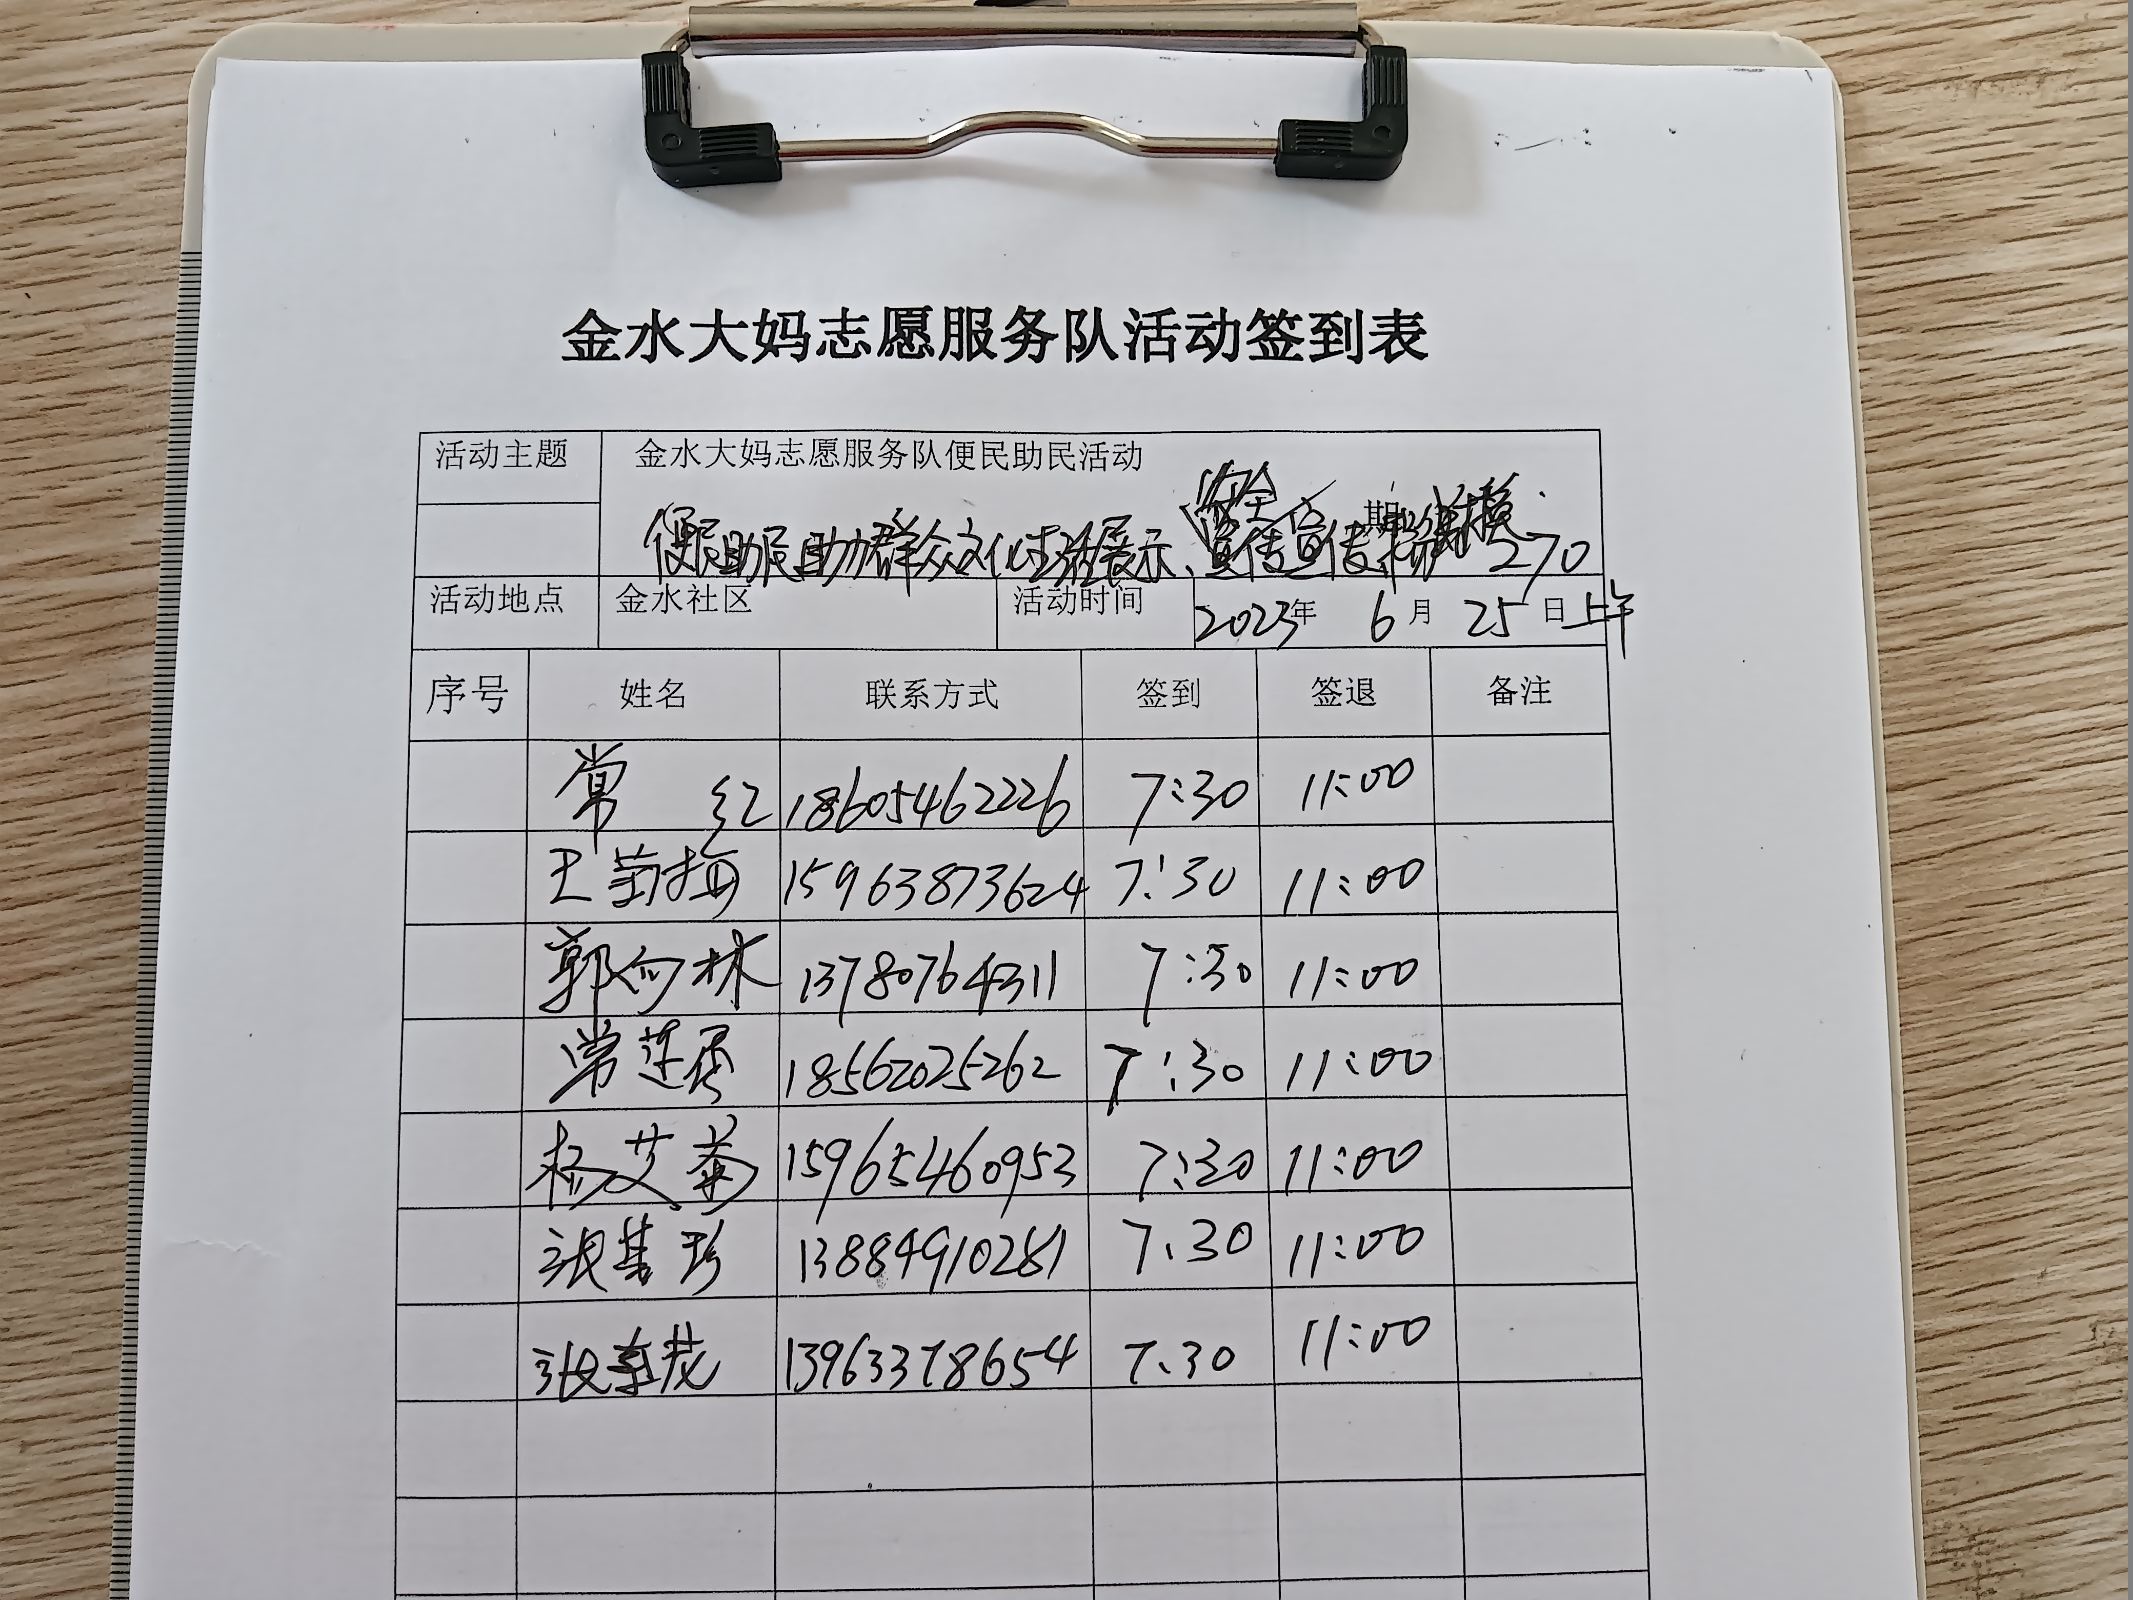 金水大妈志愿服务队活动签到表
活动主题 金水大妈志愿服务队便民助民活动
安全 期
便民助民助力群众文化生活展示、宣传宣传 270
活动地点 金水社区 活动时间 2023年 6月 25日上午
序号 姓名 联系方式 签到 签退 备注
常 红 18605462226 7:30 11:00
王菊梅 15963873624 7:30 11:00
郭向林 13780764311 7:30 11:00
常莲香 18562025262 7:30 11:00
杨艾菊 15965460953 7:30 11:00
张基珍 13884910281 7.30 11:00
张 茂 13963378654 7.30 11:00